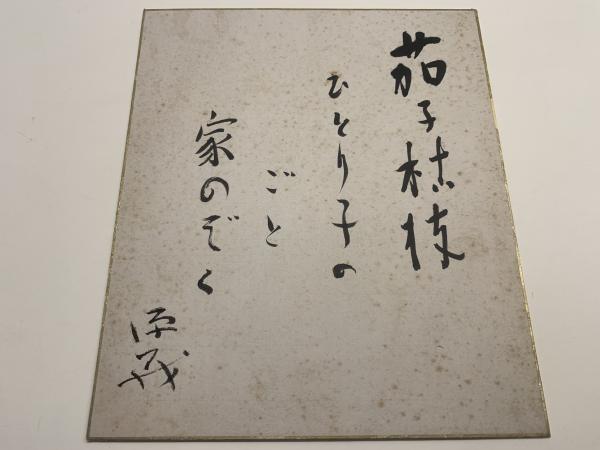 茄子枯枝
ひとり子の
ごと
家のぞく